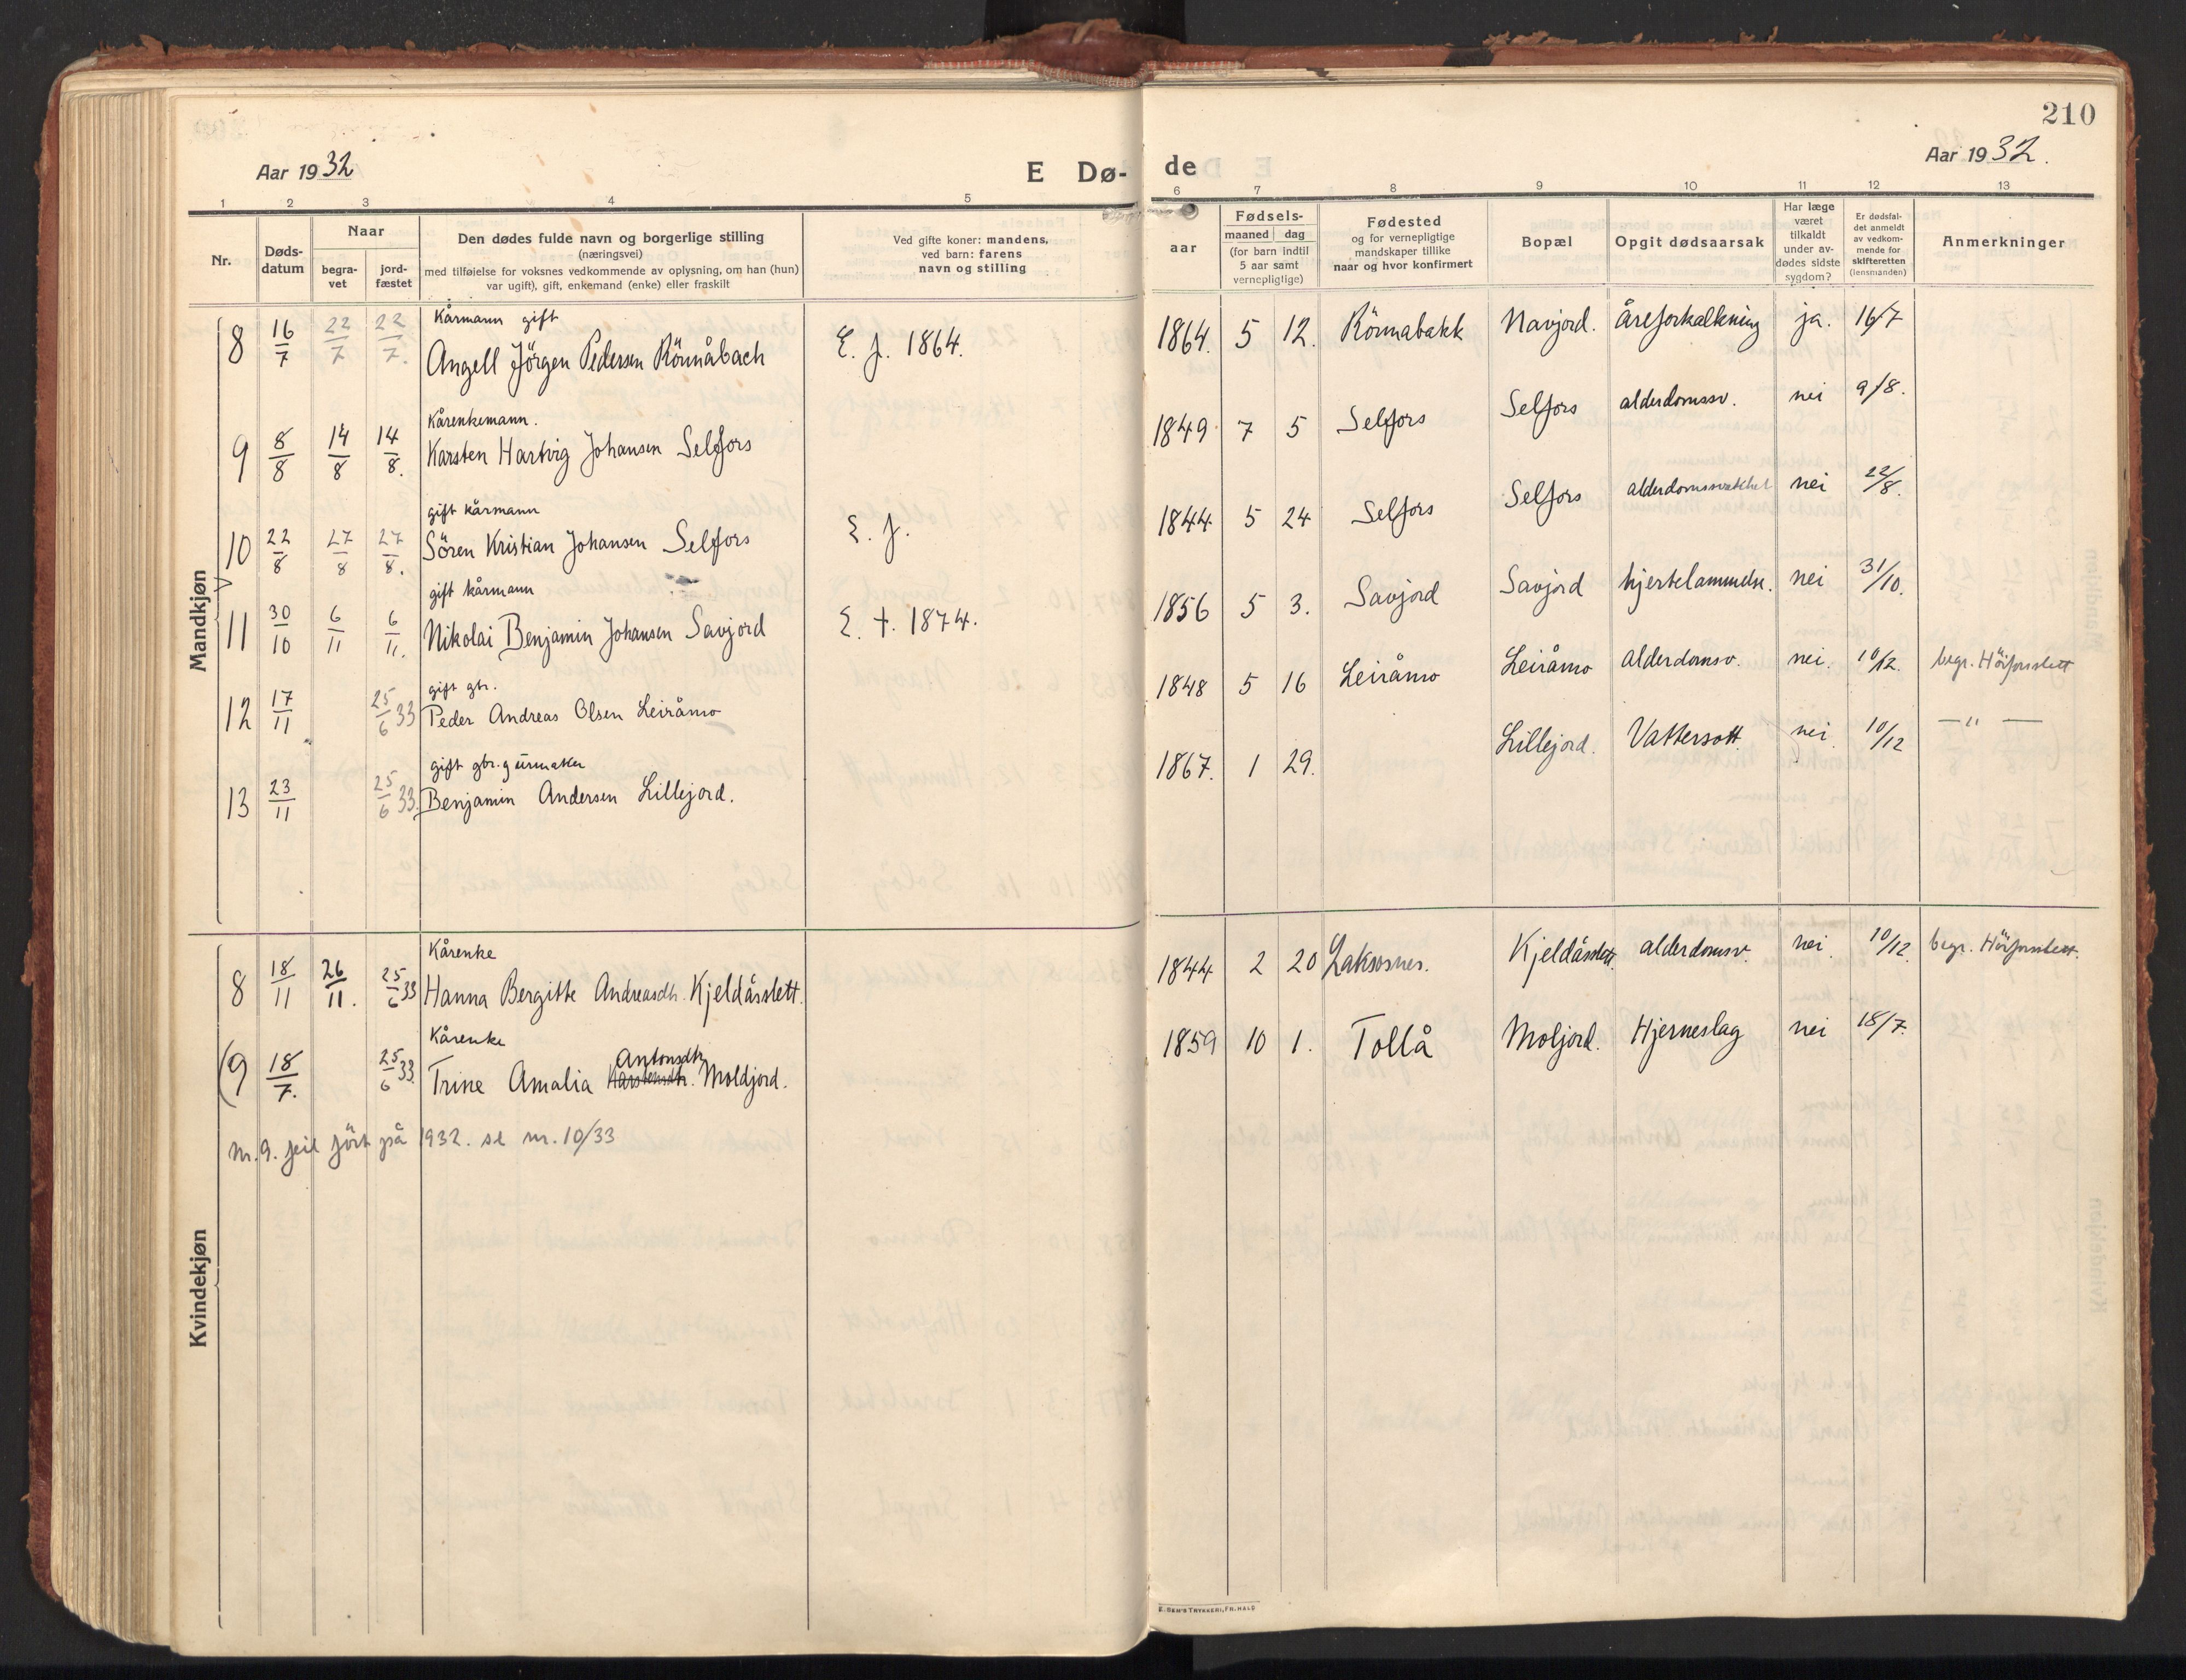 210
Aar 1932
E Dø-
de
Aar 1932.
1 2 3 4 5 6 7 8 9 10 11 12 13
Nr.
Døds-
datum
Naar
begra-
vet
jord-
fæstet
Den dødes fulde navn og borgerlige stilling
(næringsvei)
med tilføielse for voksnes vedkommende av oplysning, om han (hun)
var ugift), gift, enkemand (enke) eller fraskilt
Ved gifte koner: mandens,
ved barn: farens
navn og stilling
aar
Fødsels-
maaned dag
(for barn indtil
5 aar samt
vernepligtige)
Fødested
og for vernepligtige
mandskaper tillike
naar og hvor konfirmert
Bopæl
Opgit dødsaarsak
Har læge
været
tilkaldt
under av-
dødes sidste
sygdom?
Er dødsfal-
det anmeldt
av vedkom-
mende for
skifteretten
(lensmanden)
Anmerkninger
Mandkjøn
Kårmann gift
8 16/7 22/7 22/7. Angell Jörgen Pedersen Rönnåbach E. f. 1864. 1864. 5 12. Rönnabakk Navjord. åreforkalkning ja. 16/7
Kårenkemann.
9 8/8 14/8 14/8. Karsten Hartvig Johansen Selfors 1849. 7 5 Selfors Selfors alderdomssv. nei 9/8.
gift kårmann
10 22/8 27/8 27/8. Sören Kristian Johansen Selfors E. f. 1844 5 24 Selfors Selfors alderdomssvakhet nei 22/8.
gift kårmann
11 30/10 6/11 6/11. Nikolai Benjamin Johansen Savjord E. t. 1874. 1856 5 3. Savjord Savjord hjertelammelse. nei 31/10.
gift gbr.
12 17/11 25/6 33 Peder Andreas Olsen Leiråmo 1848 5 16 Leiråmo Leiråmo alderdomsv. nei. 10/12. begr. Höiforslett
gift gbr. g urmaker
13 23/11 25/6 33. Benjamin Andersen Lillejord. 1867. 1 29. Lillejord. Vattersott. nei. 10/12 — " —
Kvindekjøn
Kårenke
8 18/11 26/11. 25/6 33 Hanna Bergitte Andreasdtr. Kjeldåsslett. 1844 2 20 Laksosnes. Kjeldåsslett. alderdomsv. nei. 10/12. begr. Höiforslett.
Kårenke
Antonsdtr
(9 18/7. 25/6 33. Trine Amalia Karstensdtr. Moldjord. 1859 10 1. Tollå Moljord. Hjerneslag nei 18/7.
nr. 9. feil fört på 1932. se nr. 10/33
E. SEM'S TRYKKERI, FR.HALD